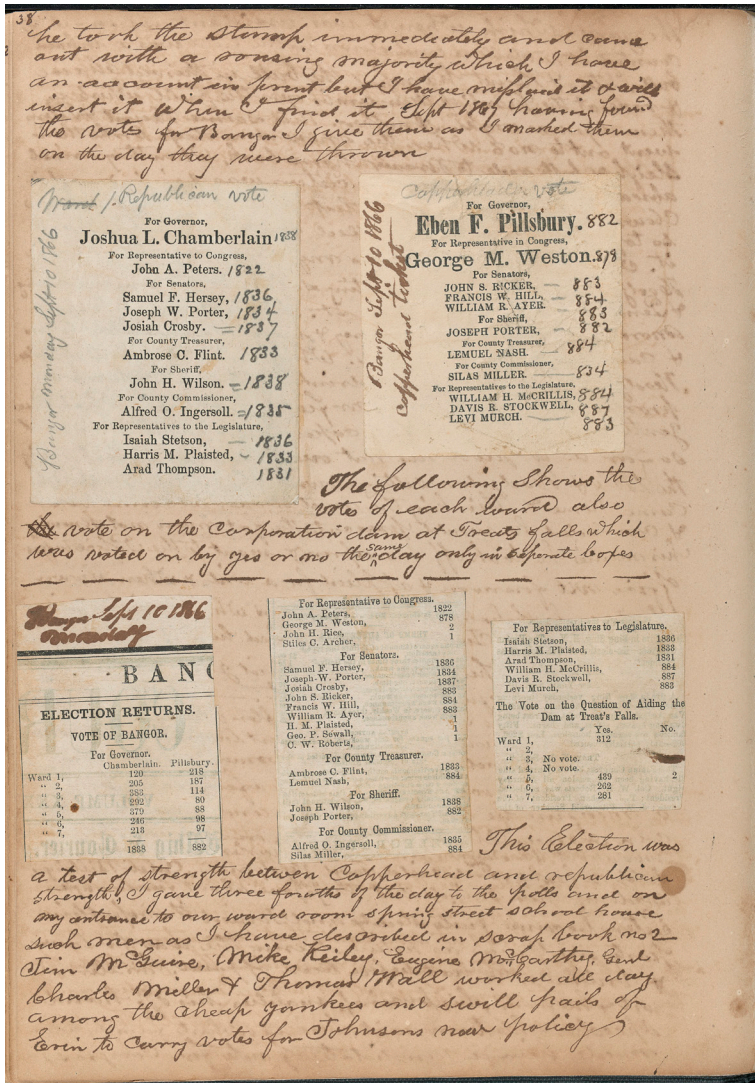 38
he took the stump immediately and came
out with a rousing majority which I have
an account in print but I have misplaced it & will
insert it when I find it Sept 1867 having found
the votes for Bangor I give them as I marked them
on the day they were thrown
Ward 1. Republican vote
Bangor monday Sept 10 1866
For Governor,
Joshua L. Chamberlain 1838
For Representative to Congress,
John A. Peters. 1822
For Senators,
Samuel F. Hersey, 1836
Joseph W. Porter, 1834
Josiah Crosby. 1837
For County Treasurer,
Ambrose C. Flint. 1833
For Sheriff,
John H. Wilson. 1838
For County Commissioner,
Alfred O. Ingersoll. 1835
For Representatives to the Legislature,
Isaiah Stetson, 1836
Harris M. Plaisted, 1833
Arad Thompson. 1831
Copperheads vote
Bangor Sept 10 1866
Copperhead ticket
For Governor,
Eben F. Pillsbury. 882
For Representative in Congress,
George M. Weston. 878
For Senators,
JOHN S. RICKER, 883
FRANCIS W. HILL, 884
WILLIAM R. AYER. 883
For Sheriff,
JOSEPH PORTER, 882
For County Treasurer,
LEMUEL NASH. 884
For County Commissioner,
SILAS MILLER. 834
For Representatives to the Legislature,
WILLIAM H. McCRILLIS, 884
DAVIS R. STOCKWELL, 887
LEVI MURCH. 883
The following Shows the
votes of each ward also
the vote on the Corporation dam at Treats falls which
was voted on by yes or no the same day only in seperate boxes
Bangor Sept 10 1866
monday
BANG
ELECTION RETURNS.
VOTE OF BANGOR.
For Governor.
Chamberlain. Pillsbury.
Ward 1, 120 218
" 2, 205 187
" 3, 383 114
" 4, 292 80
" 5, 379 88
" 6, 246 98
" 7, 213 97
1838 882
For Representative to Congress.
John A. Peters, 1822
George M. Weston, 878
John H. Rice, 2
Stiles C. Archer, 1
For Senators.
Samuel F. Hersey, 1836
Joseph W. Porter, 1834
Josiah Crosby, 1837
John S. Ricker, 883
Francis W. Hill, 884
William R. Ayer, 883
H. M. Plaisted, 1
Geo. P. Sewall, 1
C. W. Roberts, 1
For County Treasurer.
Ambrose C. Flint, 1833
Lemuel Nash, 884
For Sheriff.
John H. Wilson, 1838
Joseph Porter, 882
For County Commissioner.
Alfred O. Ingersoll, 1835
Silas Miller, 884
For Representatives to Legislature.
Isaiah Stetson, 1836
Harris M. Plaisted, 1833
Arad Thompson, 1831
William H. McCrillis, 884
Davis R. Stockwell, 887
Levi Murch, 883
The Vote on the Question of Aiding the
Dam at Treat's Falls.
Yes. No.
Ward 1, 312
" 2,
" 3, No vote.
" 4, No vote.
" 5, 439 2
" 6, 262
" 7, 281
This Election was
a test of strength between Copperhead and republican
strength, I gave three fourths of the day to the polls and on
my entrance to our ward room spring street school house
such men as I have described in scrap book no 2
Jim McGuire, Mike Keiley, Eugene McCarthy, Genl
Charles Miller & Thomas Wall worked all day
among the cheap yankees and swill pails of
Erin to carry votes for Johnsons new policy